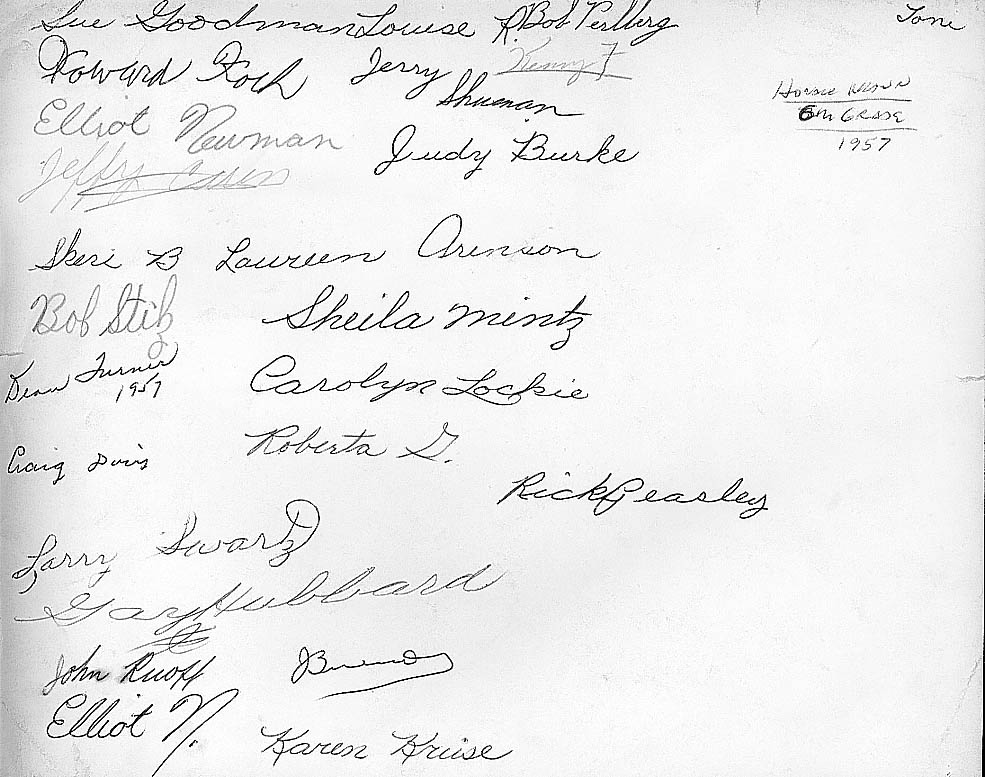 Sue Goodman Louise R. Bob Perlberg Toni
Howard Koch Jerry Shuman Kenny F
Horace Mann
6th Grade
1957
Elliot Newman
Judy Burke
Jeffry
Skeri B Laureen Arenson
Bob Stitz Sheila Mintz
Dean Turner
1957
Carolyn Lockie
Roberta G.
Craig Davis
Rick Peasley
Larry Swartz
Gary Hubbard
John Ruoff
Elliot N.
Karen Kruse